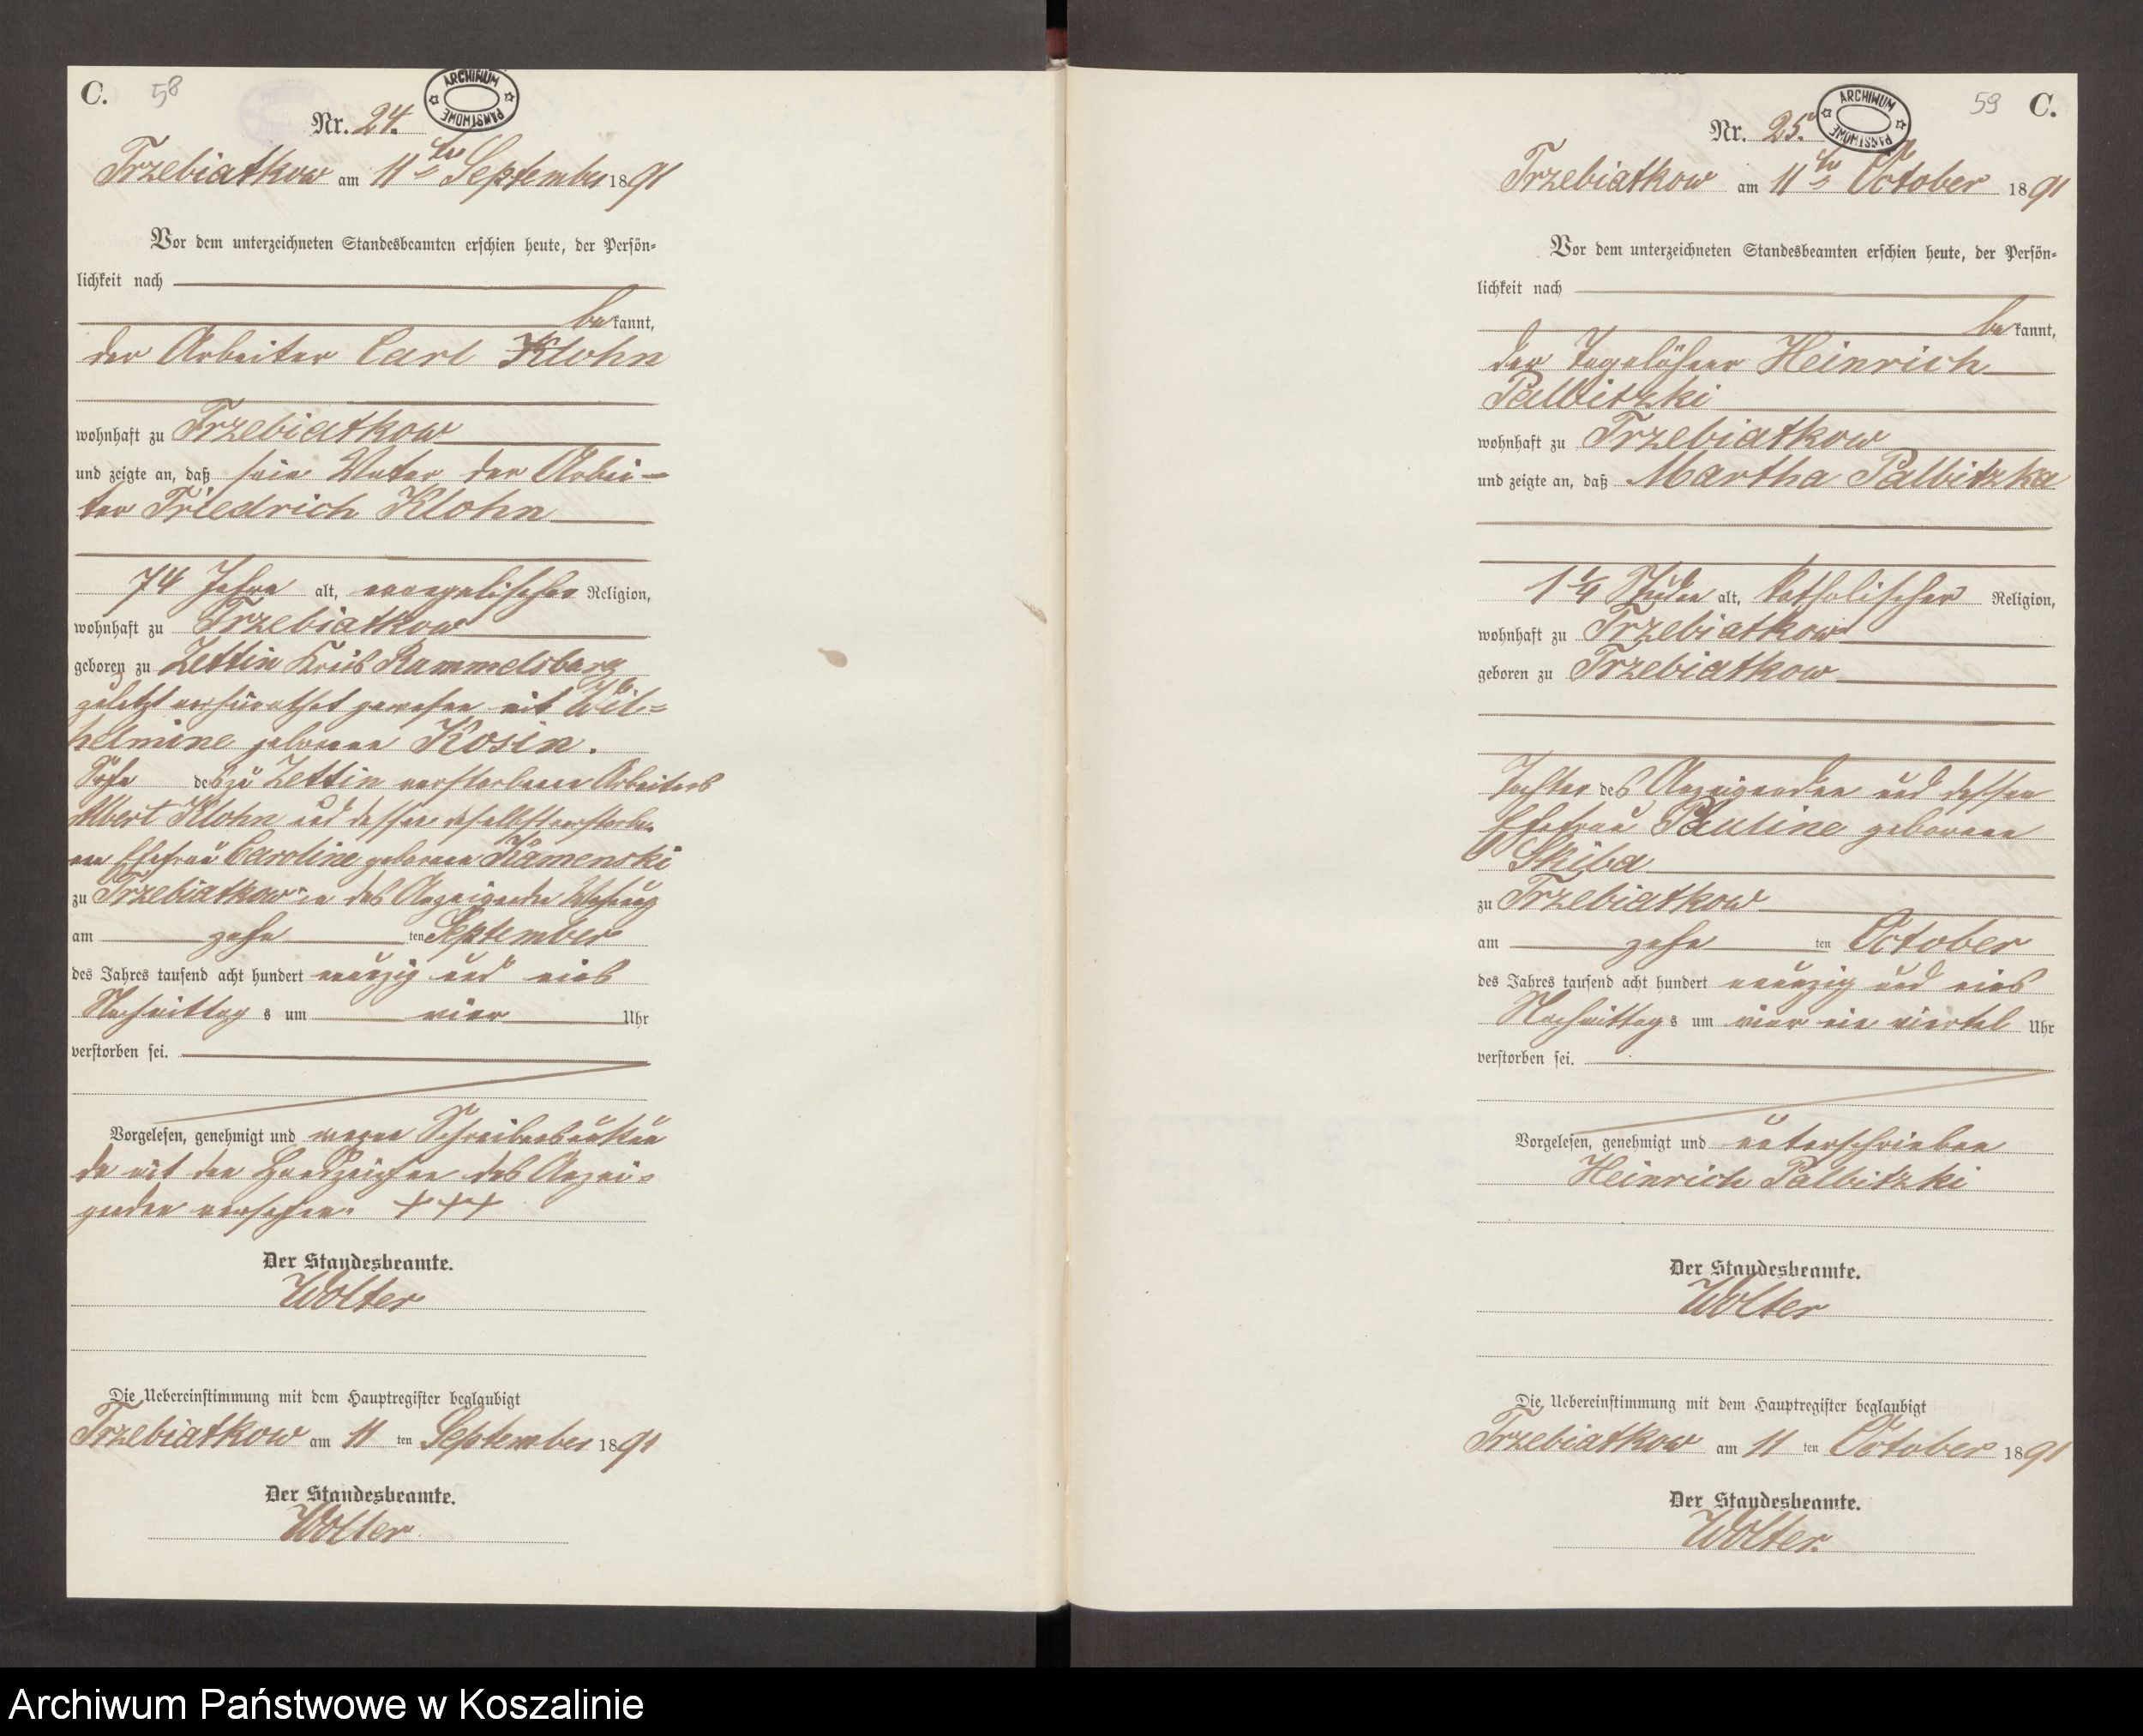 C. 58
ARCHIWUM PAŃSTWOWE
Nr. 24.
Trzebiatkow am 11ten September 1891
Vor dem unterzeichneten Standesbeamten erschien heute, der Persön-
lichkeit nach
bekannt,
der Arbeiter Carl Klohn
wohnhaft zu Trzebiatkow
und zeigte an, daß sein Vater der Arbei-
ter Friedrich Klohn
74 Jahre alt, evangelischer Religion,
wohnhaft zu Trzebiatkow
geboren zu Zettin Kreis Rummelsburg
zuletzt verheirathet gewesen mit Wil-
helmine geborene Kosin.
Sohn des zu Zettin verstorbenen Arbeiters
Albert Klohn und dessen daselbst verstorbe-
nen Ehefrau Caroline geborene Kamenski
zu Trzebiatkow in des Anzeigenden Wohnung
am zehn ten September
des Jahres tausend acht hundert neunzig und eins
Nachmittags um vier Uhr
verstorben sei.
Vorgelesen, genehmigt und wegen Schreibensunkun
de mit den Handzeichen des Anzei-
genden versehen. +++
Der Standesbeamte.
Wolter
Die Uebereinstimmung mit dem Hauptregister beglaubigt
Trzebiatkow am 11 ten September 1891
Der Standesbeamte.
Wolter
59 C.
ARCHIWUM PAŃSTWOWE
Nr. 25.
Trzebiatkow am 11ten October 1891
Vor dem unterzeichneten Standesbeamten erschien heute, der Persön-
lichkeit nach
bekannt,
der Tagelöhner Heinrich
Palbitzki
wohnhaft zu Trzebiatkow
und zeigte an, daß Martha Palbitzka
1 1/4 Stunden alt, katholischer Religion,
wohnhaft zu Trzebiatkow
geboren zu Trzebiatkow
Tochter des Anzeigenden und dessen
Ehefrau Pauline geborene
Skiba
zu Trzebiatkow
am zehn ten October
des Jahres tausend acht hundert neunzig und eins
Nachmittags um vier ein viertel Uhr
verstorben sei.
Vorgelesen, genehmigt und unterschrieben
Heinrich Palbitzki
Der Standesbeamte.
Wolter
Die Uebereinstimmung mit dem Hauptregister beglaubigt
Trzebiatkow am 11 ten October 1891
Der Standesbeamte.
Wolter.
Archiwum Państwowe w Koszalinie